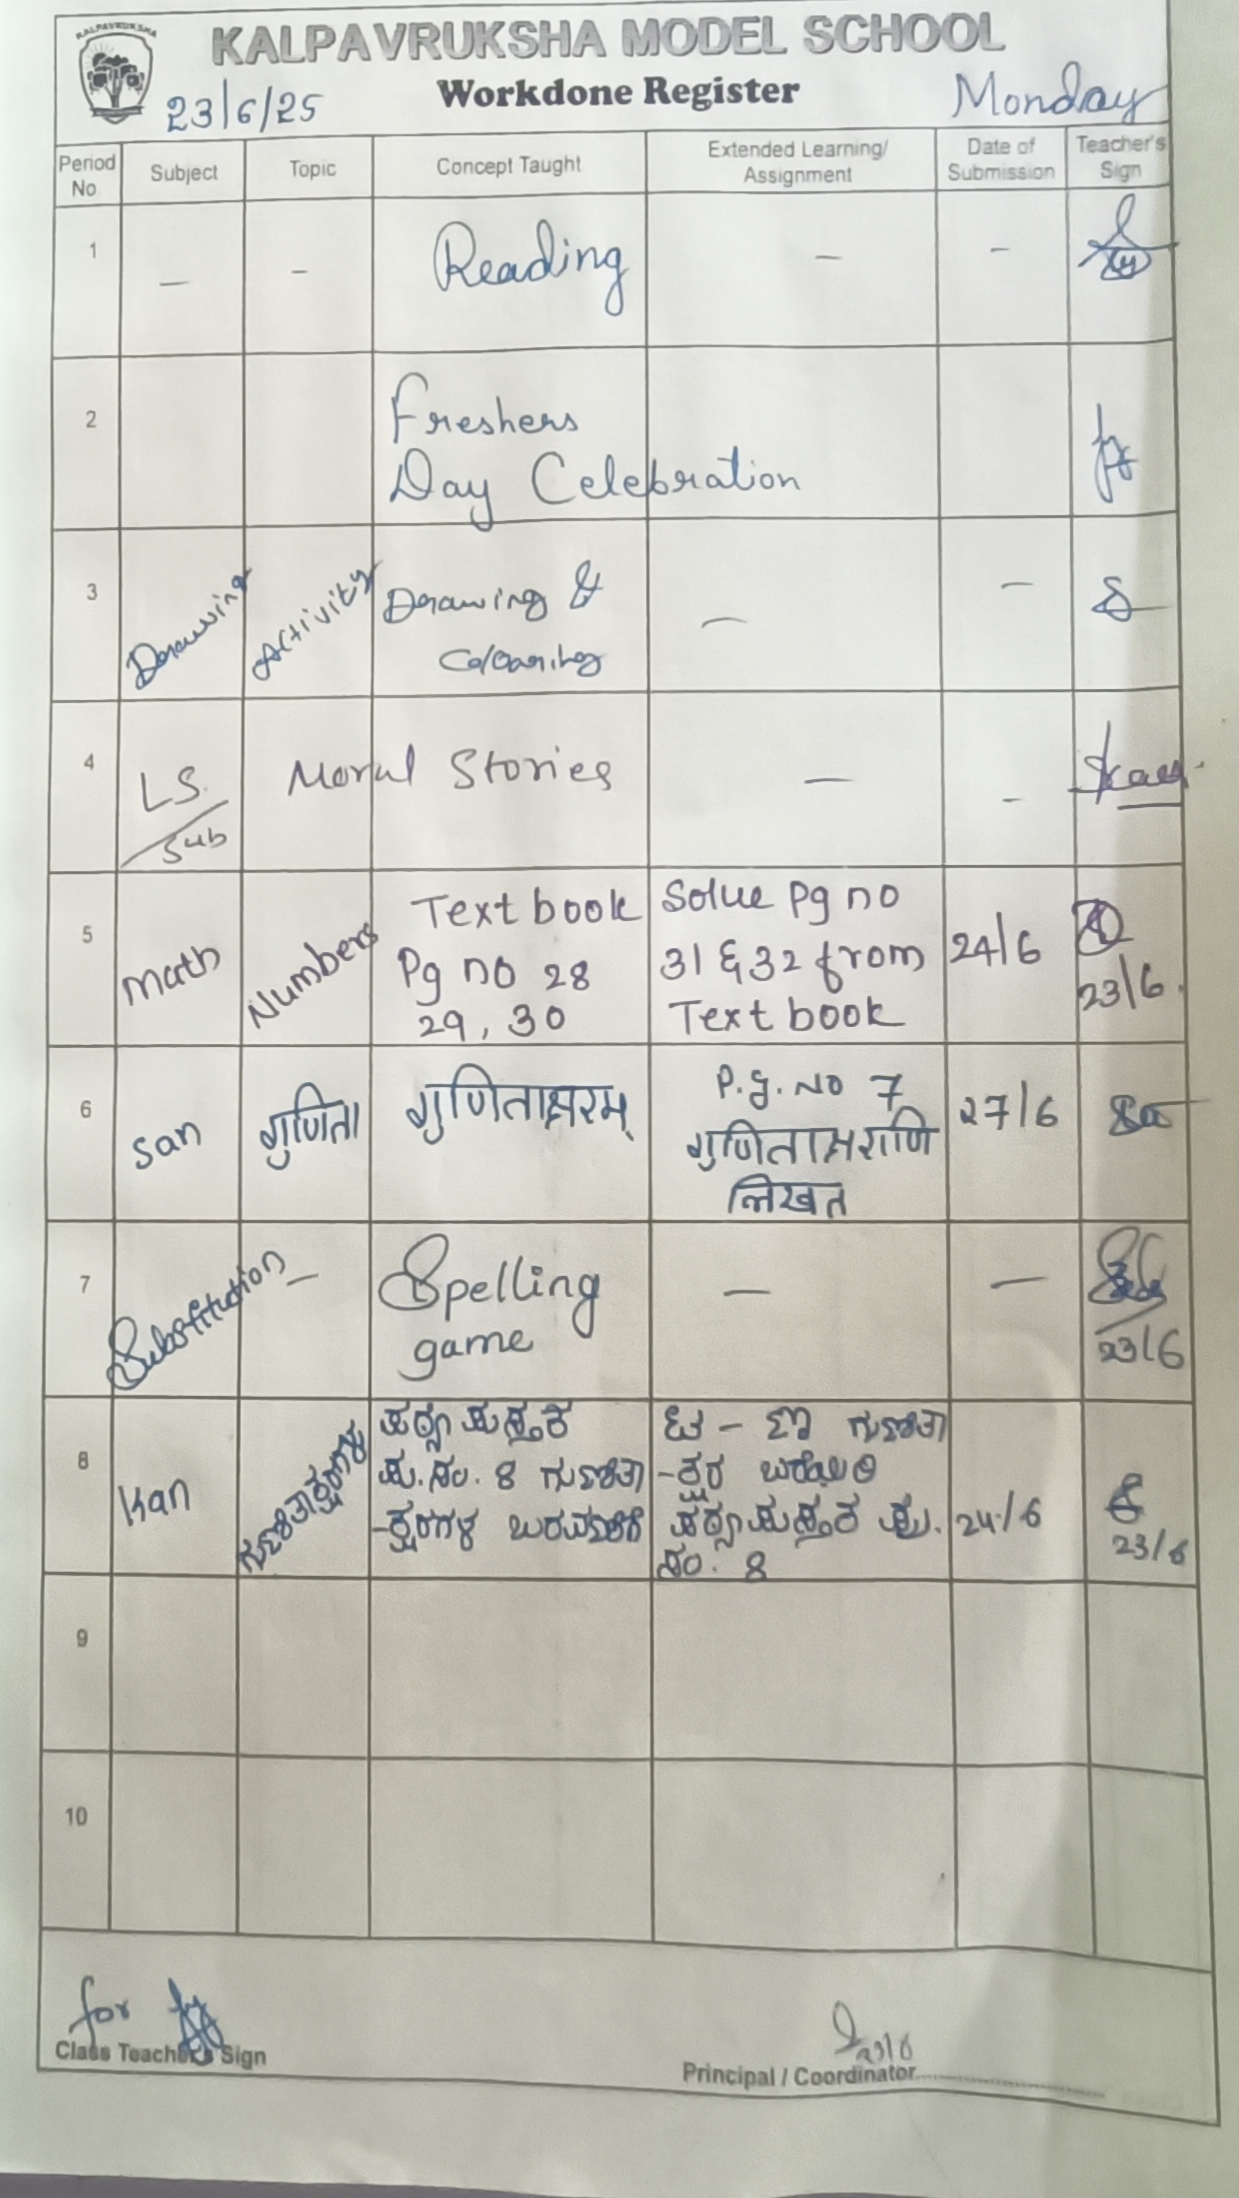 KALPAVRUKSHA
KALPAVRUKSHA MODEL SCHOOL
23/6/25 Workdone Register Monday
Period No Subject Topic Concept Taught Extended Learning/ Assignment Date of Submission Teacher's Sign
1 — — Reading — —
2 Freshers
Day Celebration
3 Drawing Activity Drawing & — —
Colouring
4 L.S. / Sub Moral Stories — —
5 Math Numbers Text book Solve Pg no 24/6
Pg no 28 31 & 32 from 23/6.
29, 30 Text book
6 San गुणिता गुणिताक्षरम् P.g. No 7 27/6
गुणिताक्षराणि
लिखत
7 Substitution — Spelling — —
game 23/6
8 Kan ಗುಣಿತಾಕ್ಷರಗಳು ಪಠ್ಯಪುಸ್ತಕ ಗುಣಿತಾ
ಪು.ಸಂ. 8 ಗುಣಿತಾ -ಕ್ಷರ ಬರೆಯಿರಿ
-ಕ್ಷರಗಳ ಬರವಣಿಗೆ ಪಠ್ಯಪುಸ್ತಕ ಪು. 24/6
ಸಂ. 8 23/6
9
10
for
Class Teacher's Sign
Principal / Coordinator